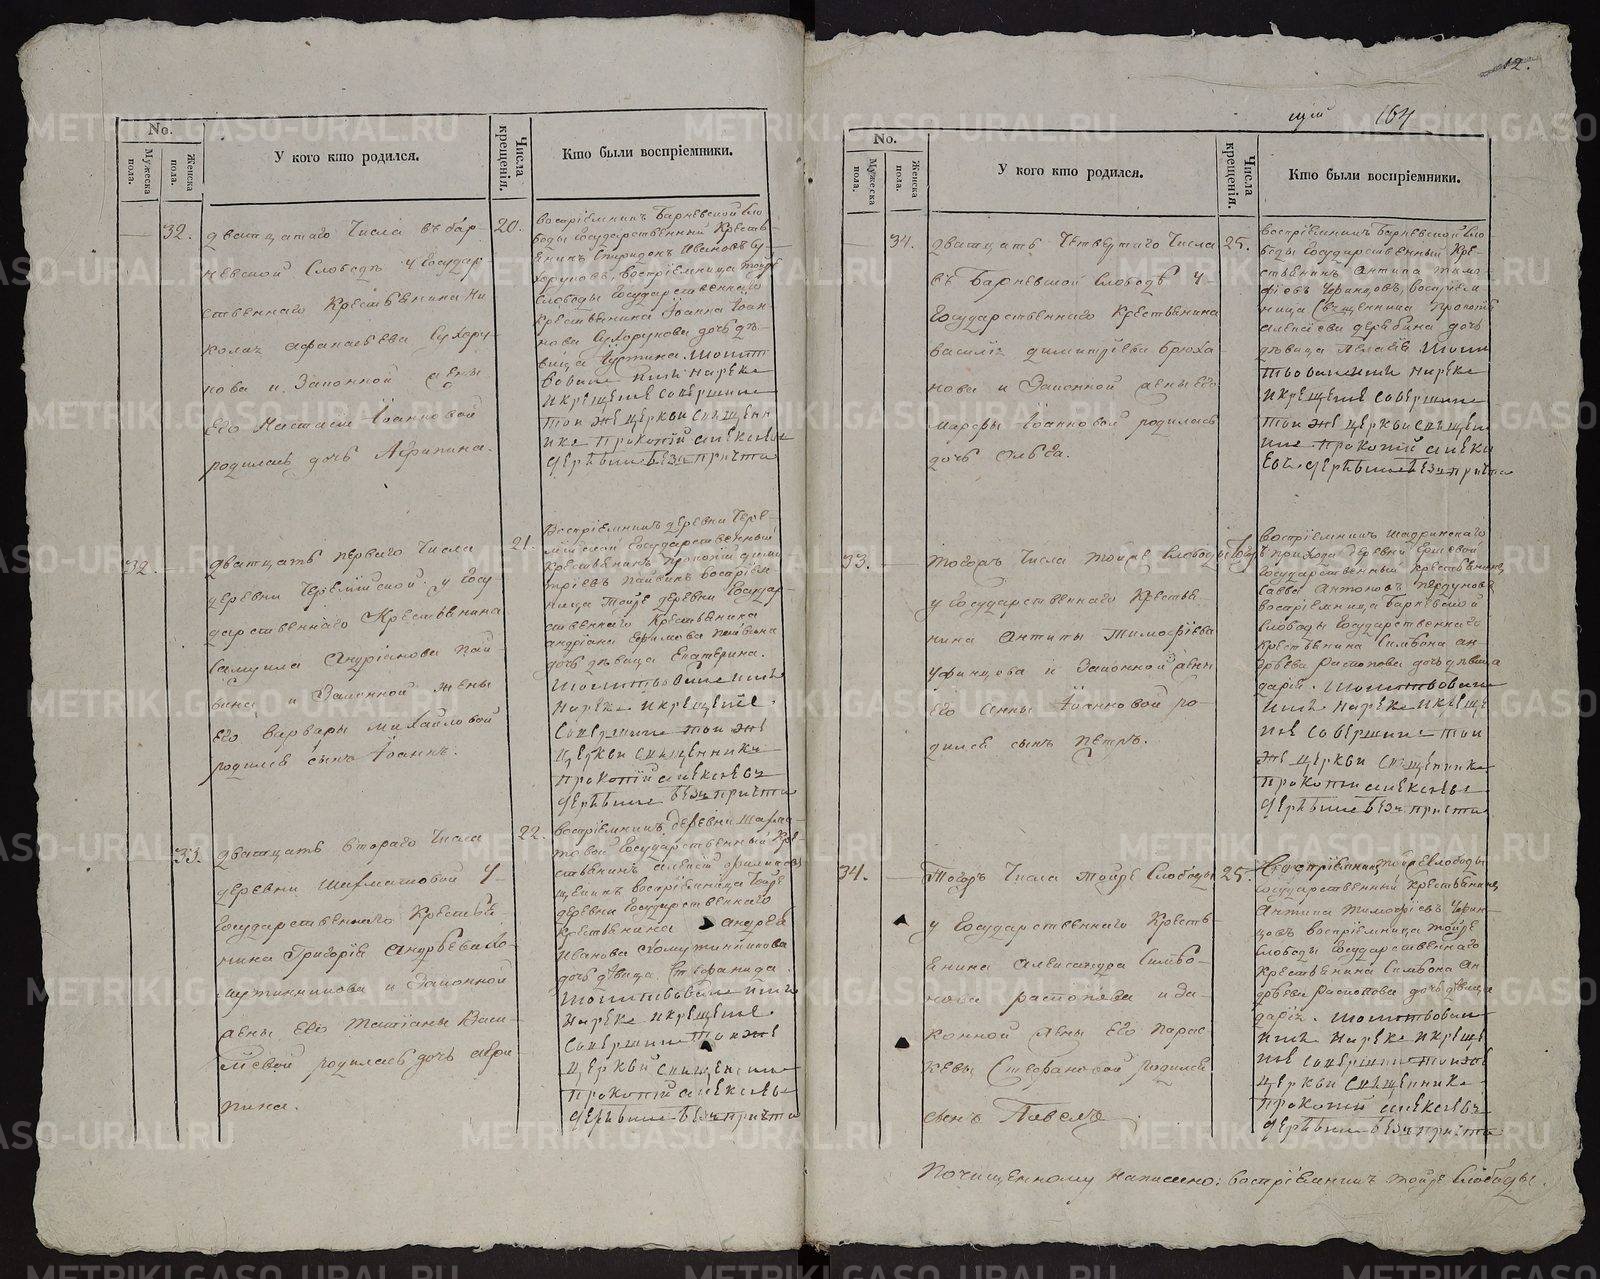 No.
Мужеска пола.
Женска пола.
У кого кто родился.
Числа крещенія.
Кто были воспріемники.
32.
двацатаго Числа въ бар-
невской Слободѣ у Государ
ственнаго Крестьянина Ни
колая афанасьева Сухору
нова и Законной жены
Его Настасьи Іоанновой
родилась дочь Агрипина.
20.
воспріемникъ Барневской сло
боды Государственный Кресть
янинъ Спиридонъ Ивановъ Су
хоруковъ, воспріемница тойже
слободы Государственнаго
Крестьянина Іоанна Іоан
нова Сухорукова дочь дѣ-
вица Іустина. Молит
вовалъ имя нареке
и крещеніе совершилъ
той же церкви священн
ике Прокопій алексѣевъ
дерябинъ безъ причта
32.
двацать перваго Числа
деревни Черемисской у Госу
дарственнаго Крестьянина
Самуила Андріанова Пай-
вина и Законной жены
Его варвары михайловой
родился сынъ Іоаннъ.
21.
Воспріемникъ деревни Чере-
мисской Государственный
Крестьянинъ прокопій дими
тріевъ пайвинъ воспріем
ница тойже деревни Государ-
ственнаго Крестьянина
андріана Ефимова пайвина
дочь дѣвица Екатерина.
Молитвовалъ имя
нареке и крещеніе
совершилъ той же
церкви священнике
прокопій алексѣевъ
дерябинъ безъ причта
33.
двацать втораго Числа
деревни Шахматовой у
Государственнаго Крестья-
нина Григорія Андрѣева Хо-
мутинникова и Законной
жены Его Татіаны Васи-
льевой родилась дочь агри-
пина.
22.
воспріемникъ деревни шахма-
товой Государственный Кре-
стьянинъ алексій филиповъ
воспріемница тойже
деревни Государственнаго
Крестьянина андрея
Иванова Хомутинникова
дочь дѣвица Стефанида.
Молитвовалъ имя
нареке и крещеніе
совершилъ той же
церкви священнике
прокопій алексѣевъ
дерябинъ безъ причта
12.
164
No.
Мужеска пола.
Женска пола.
У кого кто родился.
Числа крещенія.
Кто были воспріемники.
34.
двацать четвертаго Числа
въ Барневской слободѣ у
Государственнаго Крестьянина
василія димитріева Брюха-
нова и Законной жены Его
марфы Іоанновой родилась
дочь Ольга.
25.
воспріемникъ Барневской сло
боды Государственный Кре-
стьянинъ Антипа тимо-
фіевъ Уфинцовъ, воспріем
ница священника прокопія
алексіева дерябина дочь
дѣвица Молит
твовалъ имя нареке
и крещеніе совершилъ
той же церкви священ
ике прокопій алексѣ
евъ дерябинъ безъ причта
33.
тогожъ Числа тойже слободы
у Государственнаго Крестья-
нина антипы Тимофіева
Уфинцова и Законной жены
Его анны Іоанновой ро-
дился сынъ петръ.
воспріемникъ Шадринскаго
прихода деревни
Государственный Крестьянинъ
савва антоновъ пердуновъ
воспріемница Барневской
слободы Государственнаго
Крестьянина Симеона ан-
дрѣева Распопова дочь дѣвица
дарія. Молитвовалъ
имя нареке и креще
ніе совершилъ той
же церкви священнике
прокопій алексѣевъ
дерябинъ безъ причта
34.
Тогожъ Числа тойже слободы
у Государственнаго Кресть-
янина Александра Симео-
нова распопова и за-
конной жены Его парас-
кевы Стефановой родился
сынъ Павелъ.
25.
Воспріемникъ тойже слободы
Государственный Крестьянинъ
Антипа тимофіевъ Уфин-
цовъ воспріемница тойже
слободы Государственнаго
Крестьянина Симеона ан
дрѣева Распопова дочь дѣвица
дарія. Молитвовалъ
имя нареке и креще
ніе совершилъ той же
церкви священнике
прокопій алексѣевъ
дерябинъ безъ причта
По чищенному написано: воспріемникъ тойже слободы.
METRIKI.GASO-URAL.RU